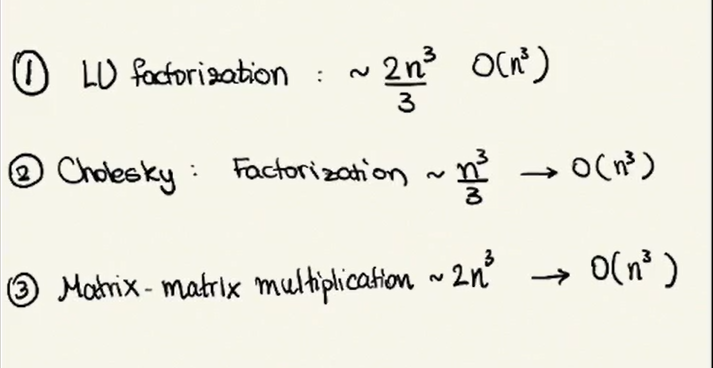 ① LU factorization : ~ 2n³/3 O(n³)
② Cholesky : Factorization ~ n³/3 → O(n³)
③ Matrix-matrix multiplication ~ 2n³ → O(n³)